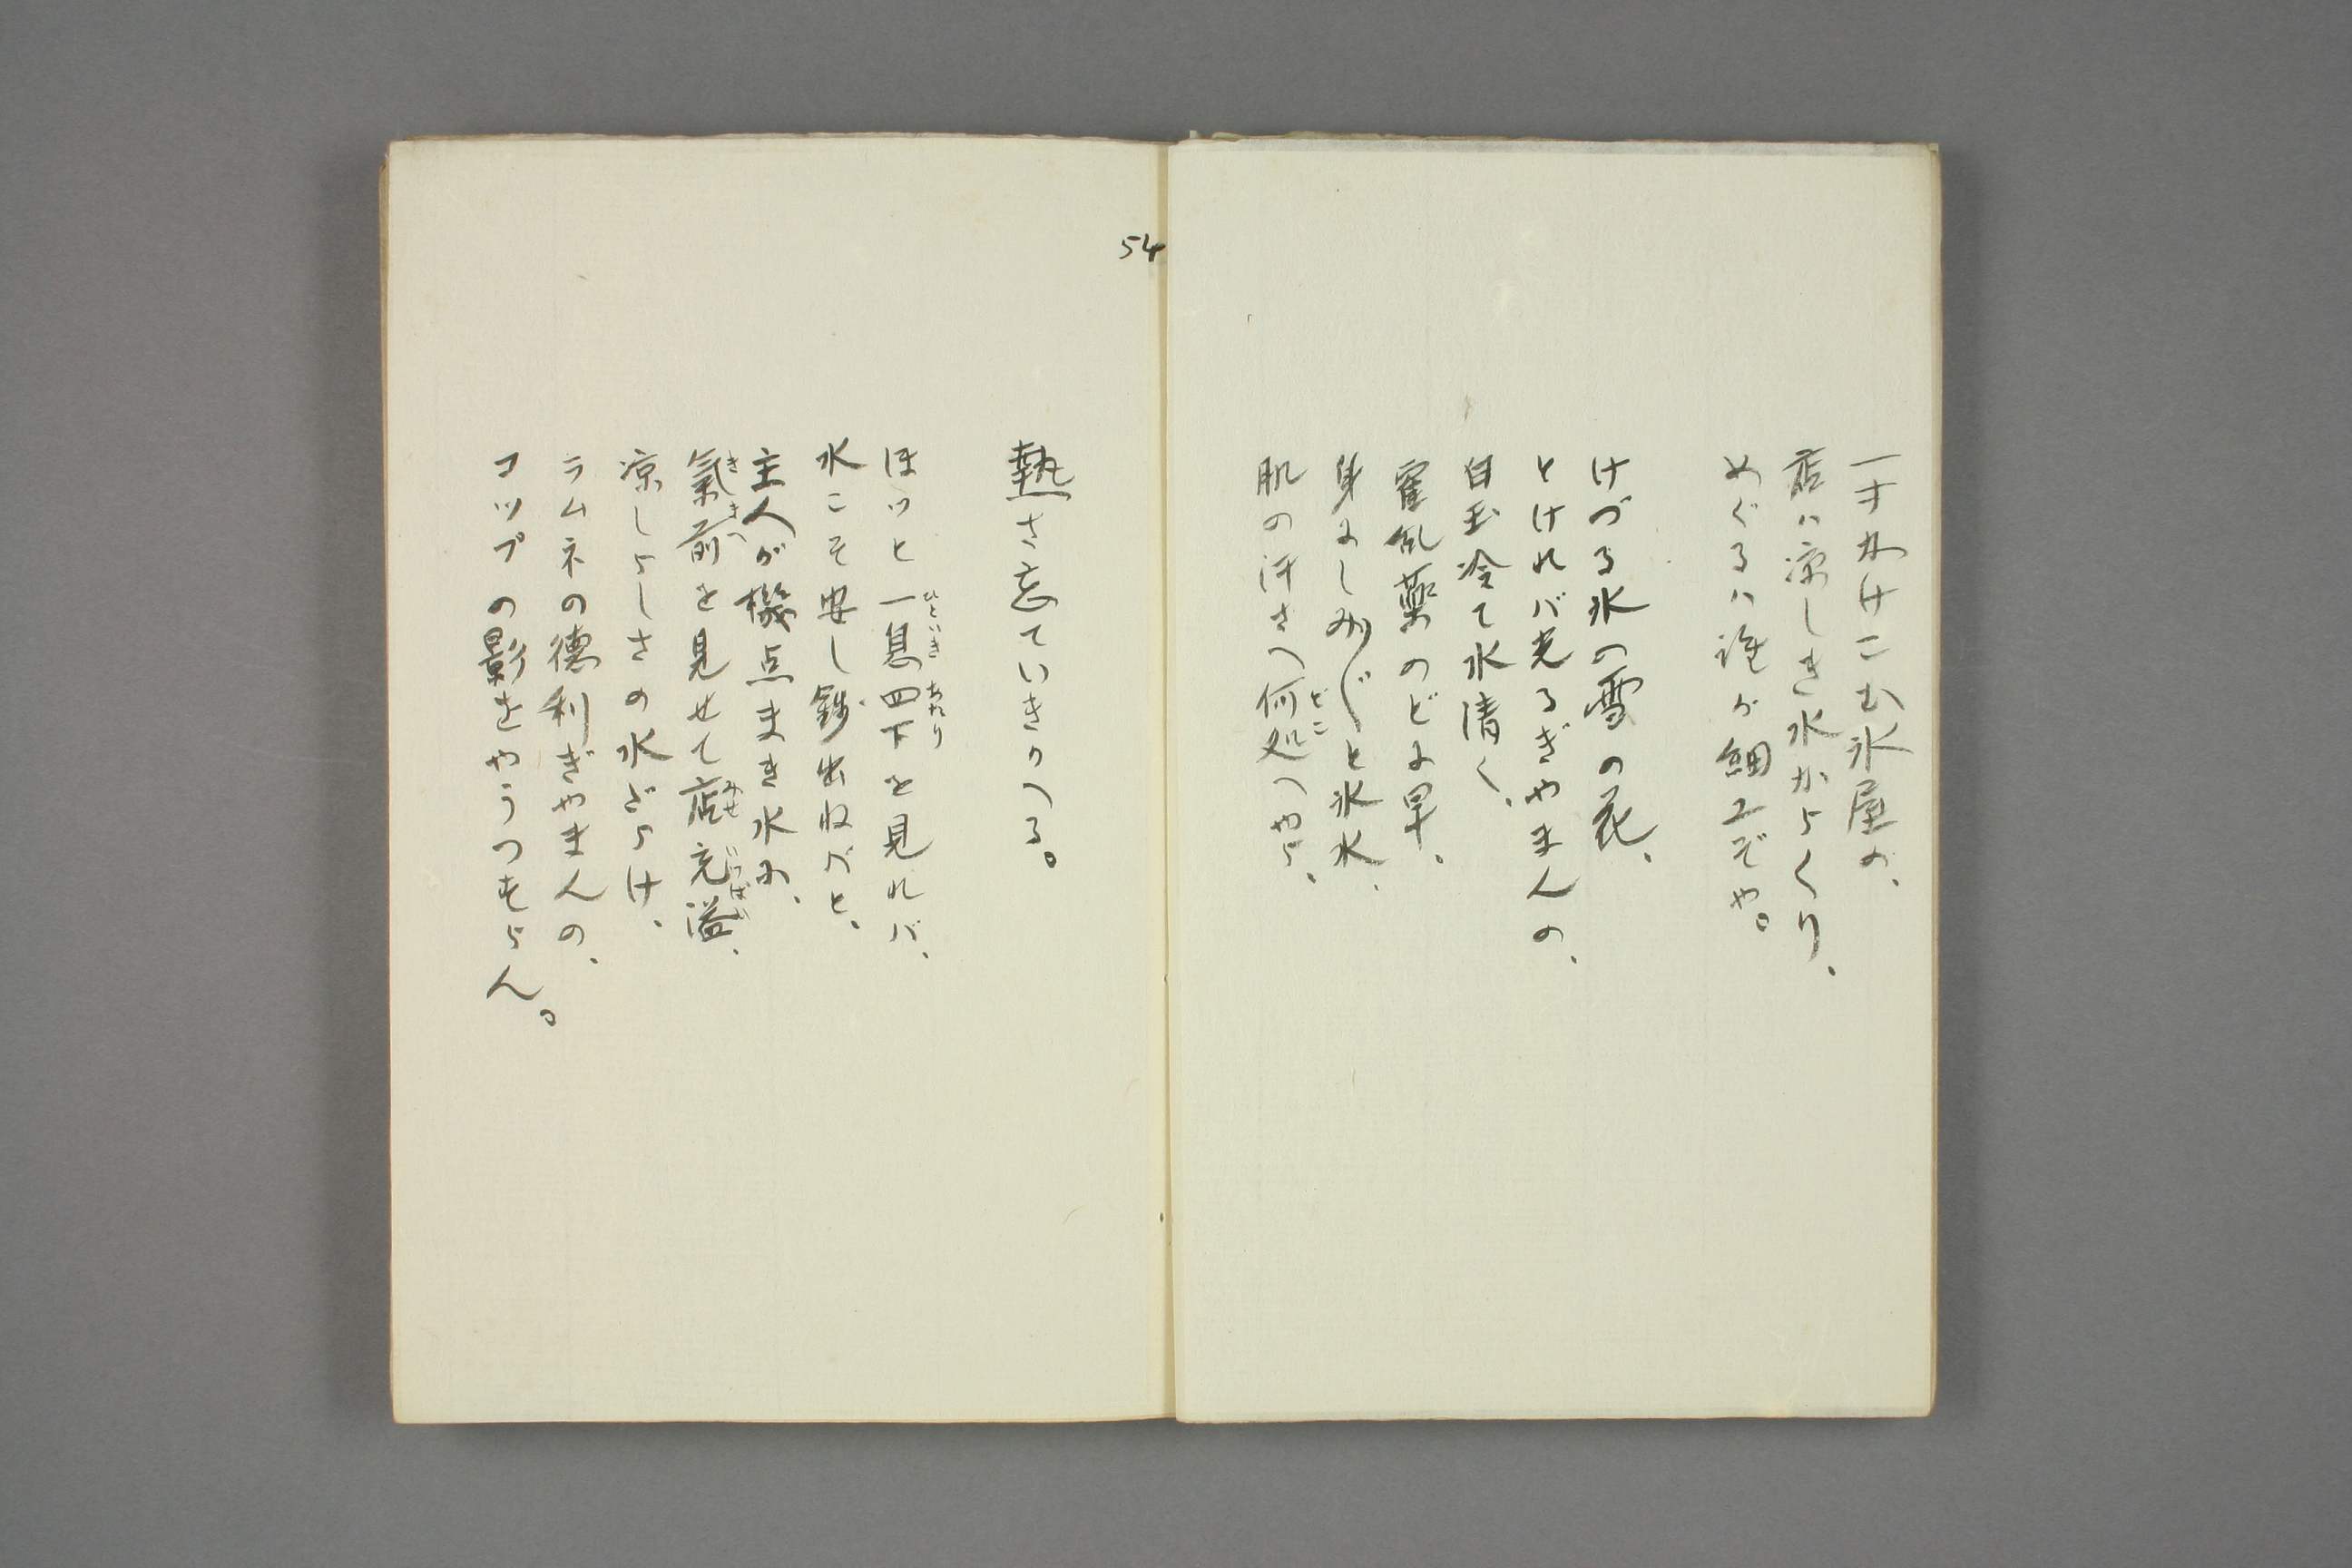 一すぢかけこむ氷屋の、
店ハ凉しき水からくり、
めぐるハ誰が細工ぞや。
けづる氷の雪の花、
とけれバ光るぎやまんの、
白玉冷て水清く、
霍乱薬のどよ早、
身よしみ〴〵と氷水、
肌の汗さへ何処へやら、
どこ
熱さ忘ていきかへる。
ほツと一息四下を見れバ、
ひといき あたり
水こそ安し銭出ねバと、
主人が機点まき水よ、
氣前を見せて店充溢、
きまへ みせ いつぱい
凉しらしさの水だらけ、
ラムネの德利ぎやまんの、
コップの影をやうつすらん。
54